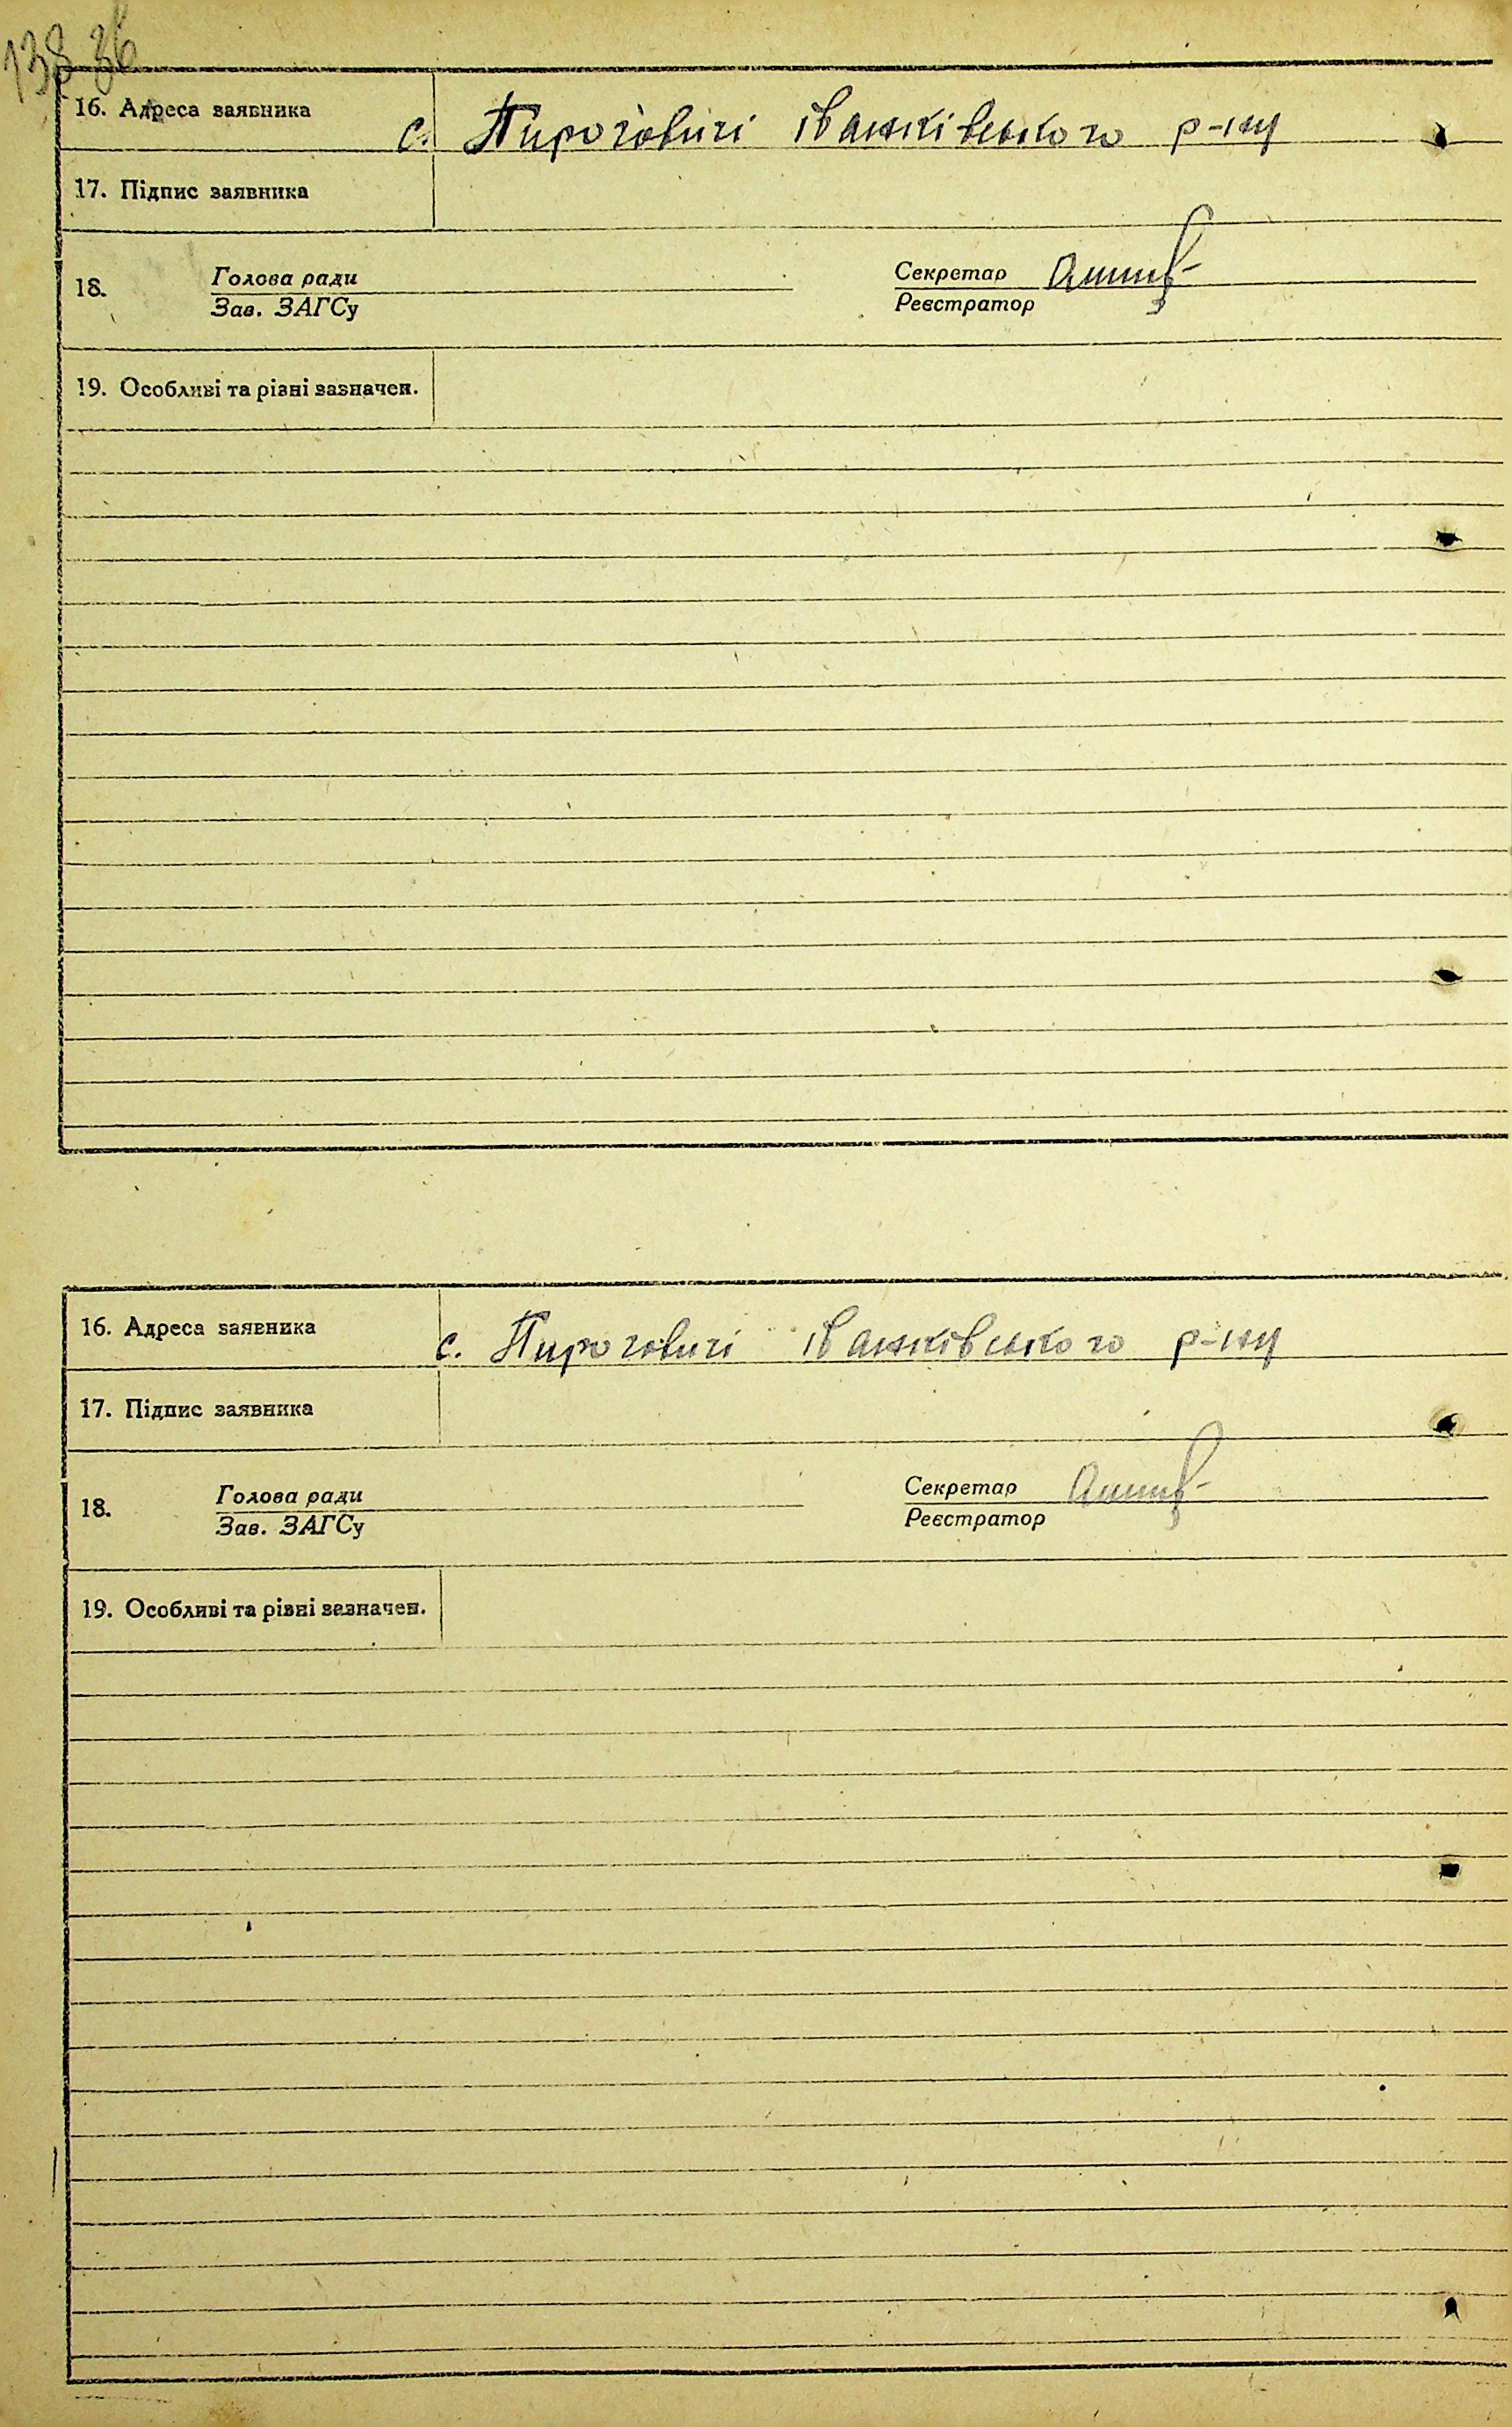 138 зв
16. Адреса заявника с. Пироговичі іванківського р-ну
17. Підпис заявника
18. Голова ради Секретар
Зав. ЗАГСу Реєстратор
19. Особливі та різні зазначен.
16. Адреса заявника с. Пироговичі іванківського р-ну
17. Підпис заявника
18. Голова ради Секретар
Зав. ЗАГСу Реєстратор
19. Особливі та різні зазначен.